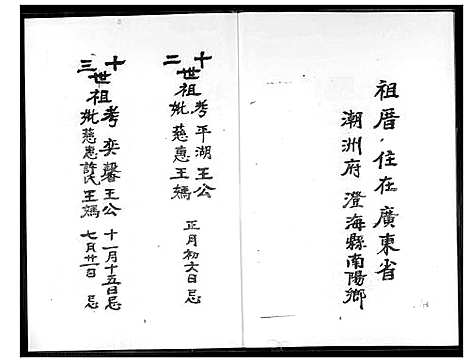 祖厝．住在廣東省
潮洲府 澄海縣南陽鄉
十二世祖考平湖王公
妣慈惠王媽 正月初六日忌
十三世祖考奕馨王公 十一月十五日忌
妣慈惠許氏王媽 七月廿一日忌